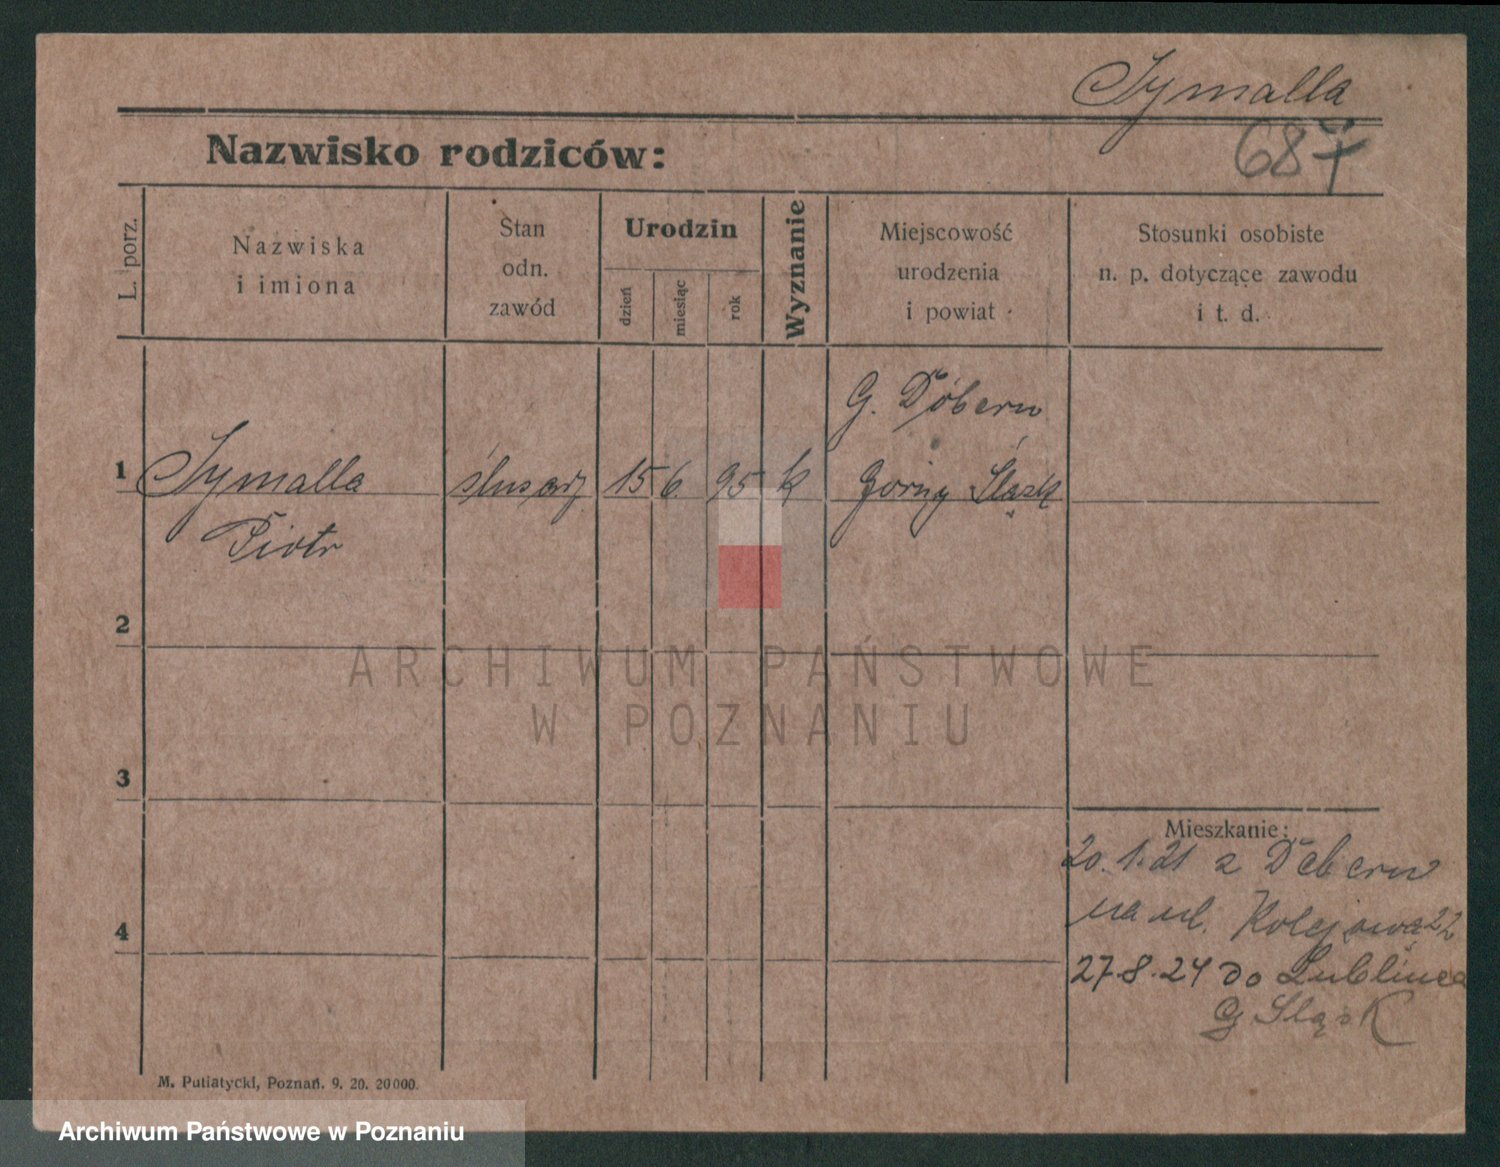 Symalla
687
Nazwisko rodziców:
L. porz.
Nazwiska
i imiona
Stan
odn.
zawód
Urodzin
dzień
miesiąc
rok
Wyznanie
Miejscowość
urodzenia
i powiat
Stosunki osobiste
n. p. dotyczące zawodu
i t. d.
G. Döbern
1 Symalla ślusarz 15 6 95 k Górny Śląsk
Piotr
2
ARCHIWUM PAŃSTWOWE
W POZNANIU
3
Mieszkanie:
20.1.21 z Döbern
4
na ul. Kolejową 22
27.8.24 do Lublińca
G Śląsk
M. Putiatycki, Poznań. 9. 20. 20000.
Archiwum Państwowe w Poznaniu